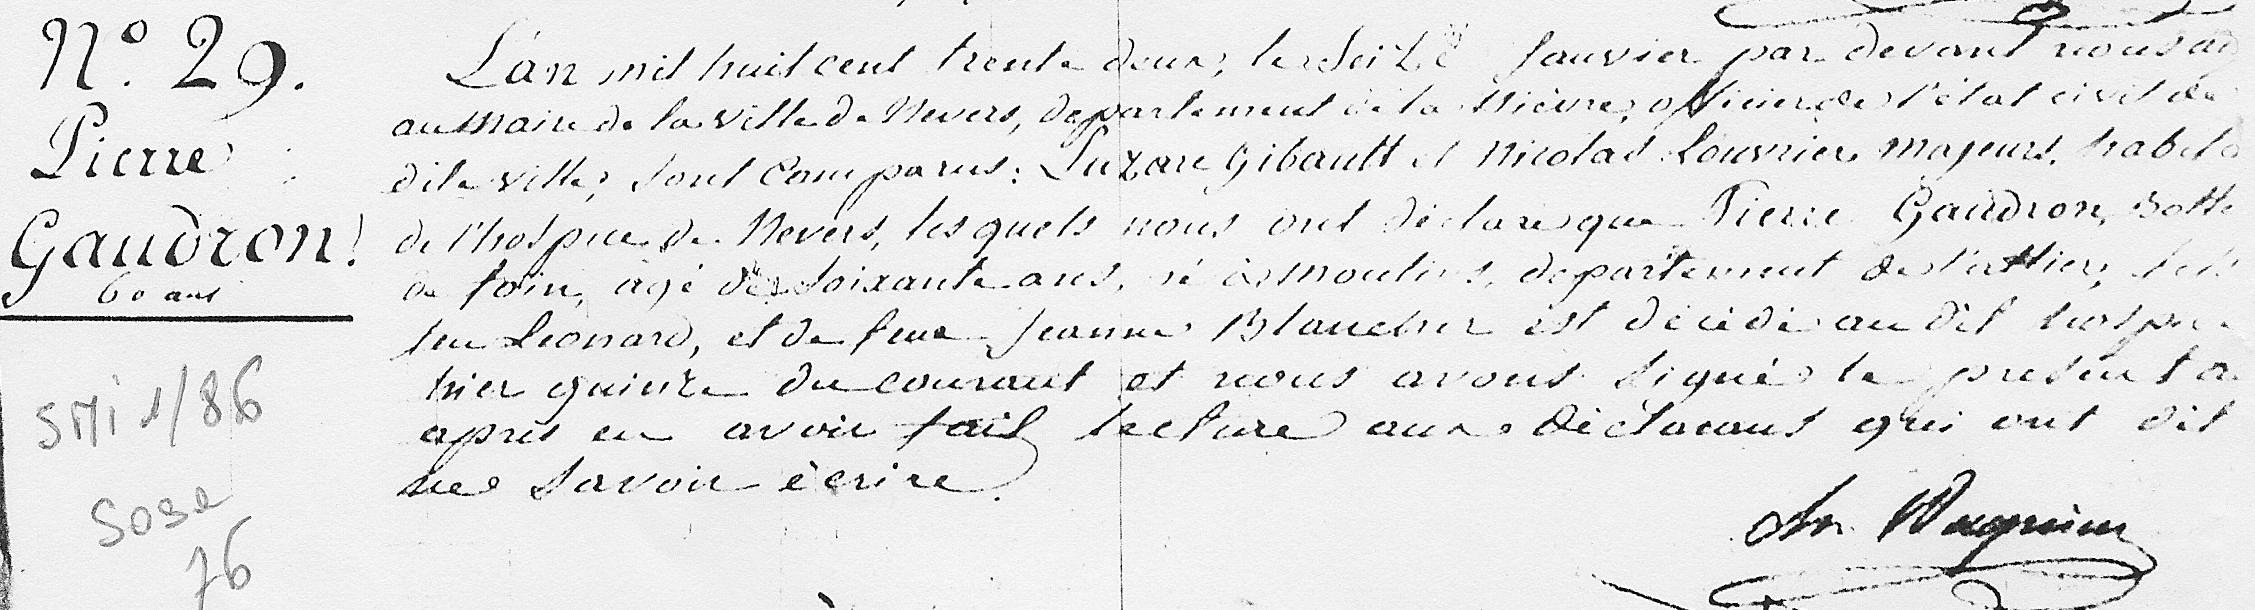 N.º 29.
Pierre
Gaudron.
60 ans
5Mi 1/86
Sosa
76
L'an mil huit cent trente deux, le Seize Janvier par devant nous adj
au Maire de la ville de Nevers, département de la Nièvre, officier de l'état civil de
dite ville, sont comparus: Luzare Gibault et Nicolas Louvrier, majeurs, habit
de l'hospice de Nevers, lesquels nous ont déclaré que Pierre Gaudron, Botte
de foin, agé de soixante ans, né à Moulins, département de l'allier, fils
feu Leonard, et de feue Jeanne Blancher est décédé au dit hospice
hier quinze du courant et nous avons signé le présent a
après en avoir fait lecture aux déclarans qui ont dit
ne savoir écrire.